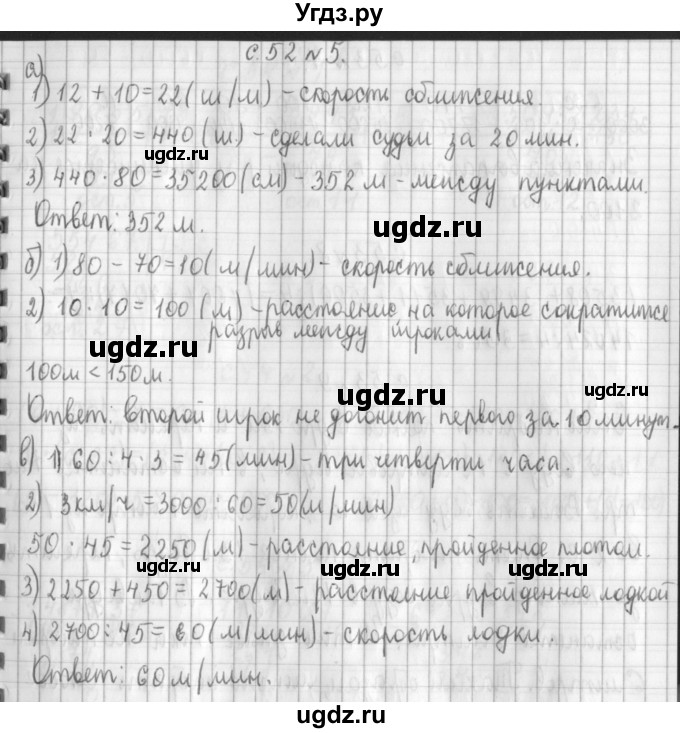 Угдз.ру
с. 52 №5.
а)
1) 12 + 10 = 22 (ш/м) - скорость сближения.
2) 22 · 20 = 440 (ш.) - сделали судьи за 20 мин.
ugdz.ru
3) 440 · 80 = 35200 (см) - 352 м - между пунктами.
Ответ: 352 м.
ugdz.ru
ugdz.ru
б) 1) 80 - 70 = 10 (м/мин) - скорость сближения.
2) 10 · 10 = 100 (м) - расстояние на которое сократится
разрыв между игроками
ugdz.ru
ugdz.ru
100 м < 150 м.
ugdz.ru
ugdz.ru
Ответ: второй игрок не догонит первого за 10 минут.
в) 1) 60 : 4 · 3 = 45 (мин) - три четверти часа.
ugdz.ru
ugdz.ru
2) 3 км/ч = 3000 : 60 = 50 (м/мин)
ugdz.ru
50 · 45 = 2250 (м) - расстояние, пройденное плотом.
ugdz.ru
ugdz.ru
ugdz.ru
3) 2250 + 450 = 2700 (м) - расстояние пройденное лодкой
4) 2700 : 45 = 60 (м/мин) - скорость лодки.
ugdz.ru
ugdz.ru
Ответ: 60 м/мин.
ugdz.ru
ugdz.ru